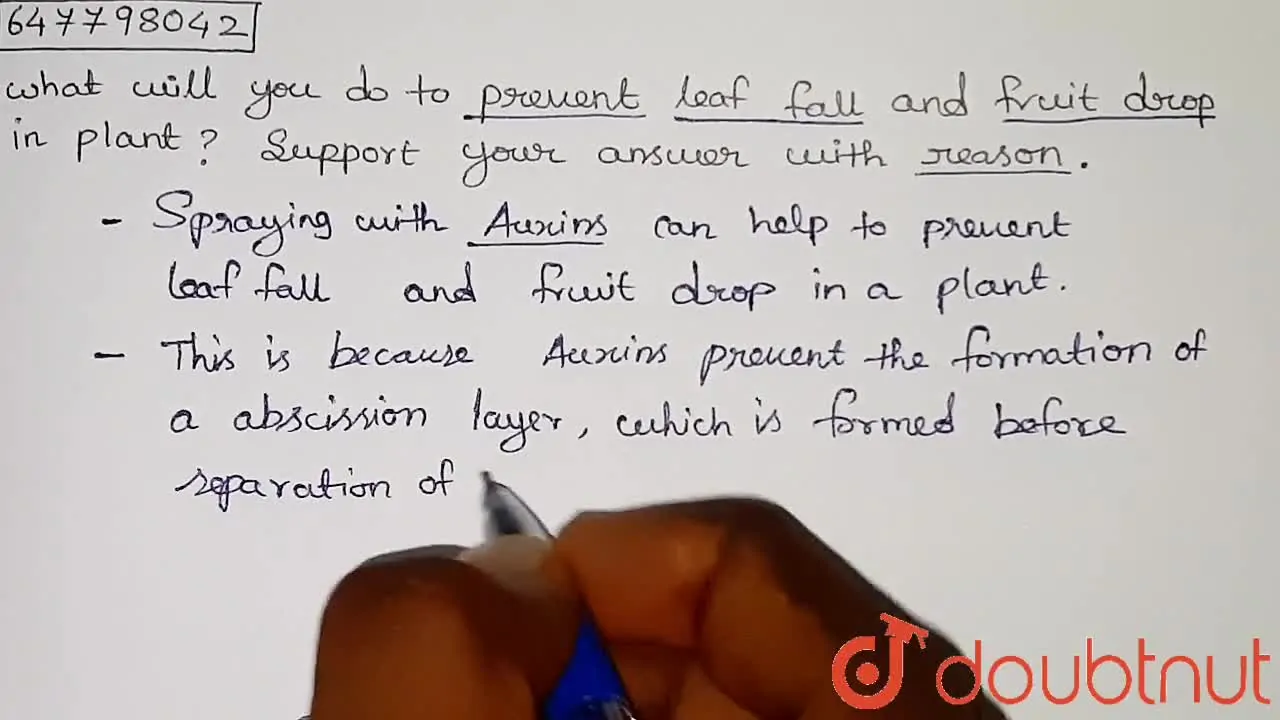 647798042
what will you do to prevent leaf fall and fruit drop
in plant? Support your answer with reason.
- Spraying with Auxins can help to prevent
leaf fall and fruit drop in a plant.
- This is because Auxins prevent the formation of
a abscission layer, which is formed before
separation of
doubtnut